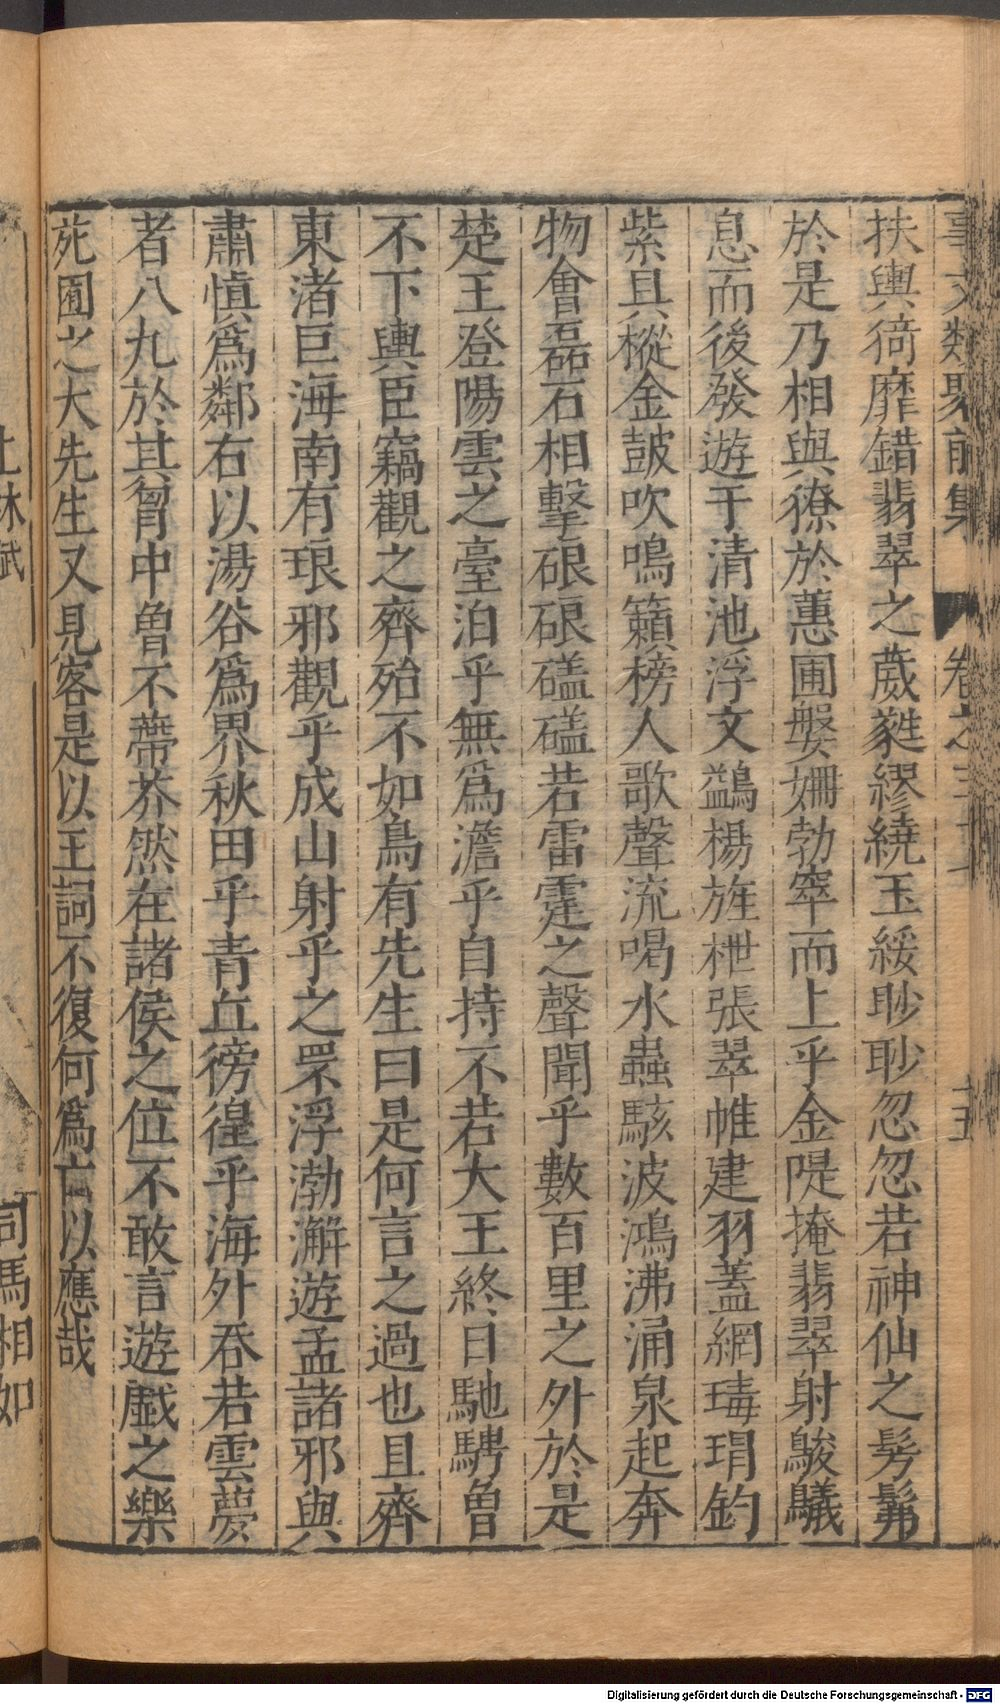 事文類聚前集　卷之三十　十五
扶輿猗靡錯翡翠之葳蕤繆繞玉綏眇眇忽忽若神仙之髣髴
於是乃相與獠於蕙圃媻姍勃窣而上乎金隄掩翡翠射鵕鸃
息而後發遊于清池浮文鷁楊旌枻張翠帷建羽蓋網瑇瑁釣
紫具樅金鼓吹鳴籟榜人歌聲流喝水蟲駭波鴻沸涌泉起奔
物會磊石相擊硠硠礚礚若雷霆之聲聞乎數百里之外於是
楚王登陽雲之臺泊乎無為澹乎自持不若大王終日馳騁曾
不下輿臣竊觀之齊殆不如烏有先生曰是何言之過也且齊
東渚巨海南有琅邪觀乎成山射乎之罘浮渤澥遊孟諸邪與
肅慎爲鄰右以湯谷爲界秋田乎青丘徬徨乎海外吞若雲夢
者八九於其胷中曾不蔕芥然在諸侯之位不敢言遊戱之樂
苑囿之大先生又見客是以王詞不復何爲亡以應哉
上林賦　司馬相如
Digitalisierung gefördert durch die Deutsche Forschungsgemeinschaft - DFG